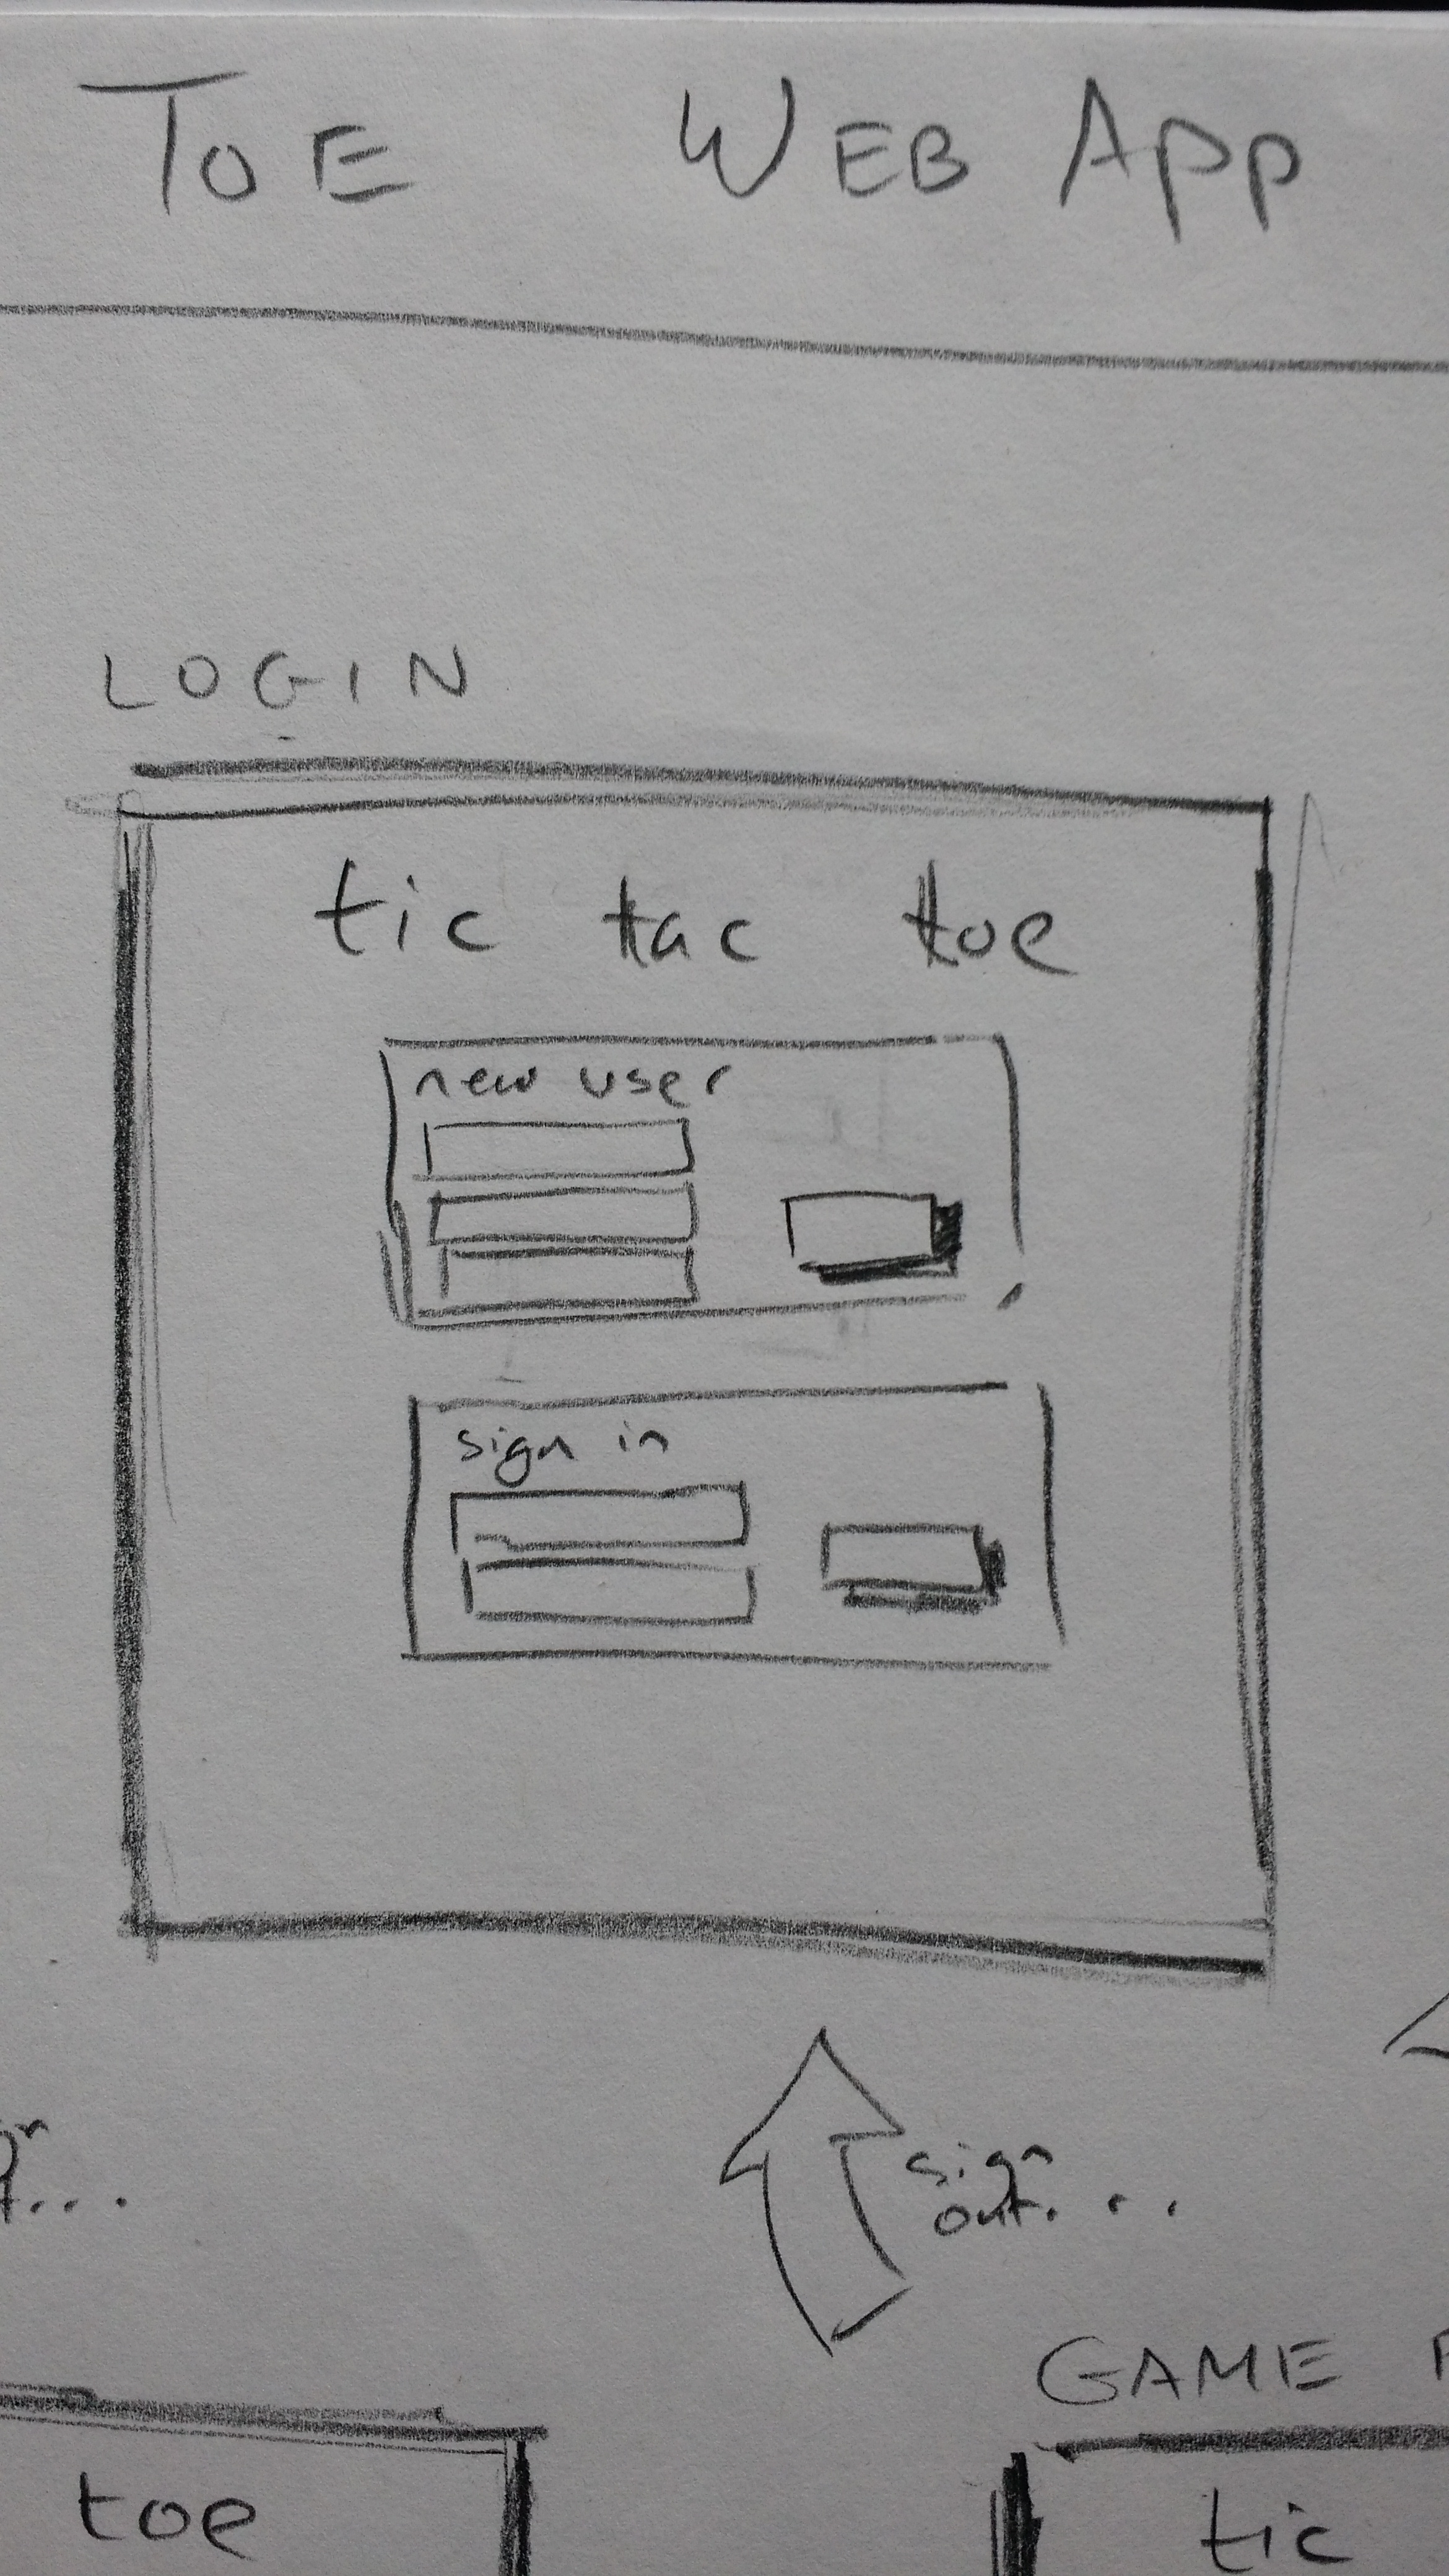 TOE WEB APP
LOGIN
tic tac toe
new user
sign in
sign
out...
GAME
toe
tic